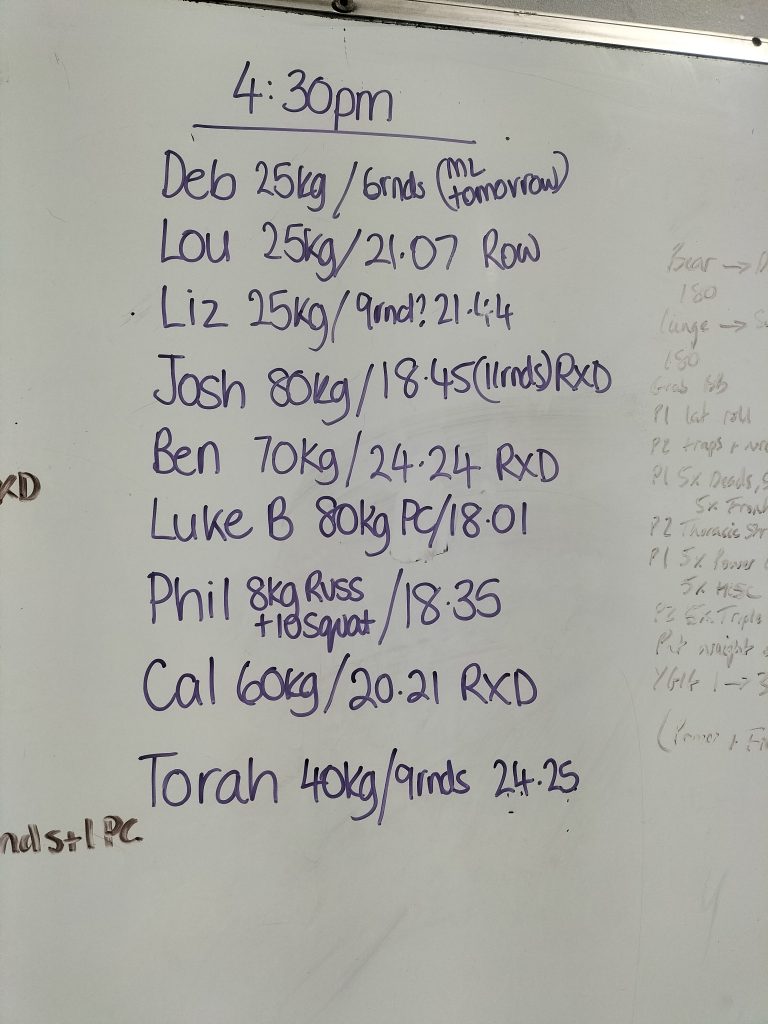 4:30pm
Deb 25kg / 6rnds (ML tomorrow)
Lou 25kg/21.07 Row
Liz 25kg/9rnd? 21.44
Josh 80kg/18.45(11rnds) RXD
Ben 70kg/24.24 RXD
Luke B 80kg PC/18.01
Phil 8kg Russ +10squat /18.35
Cal 60kg/20.21 RXD
Torah 40kg/9rnds 24.25
XD
nds+1 PC
Bear →
180
lunge →
180
Grab
P1 lat roll
P2 traps +
P1 5x Deads,
5x Front
P2 Thoracic Str
P1 5x Power
5x HSC
5x Triple
Put weight
YGIG 1 → 3
(Power + Fr